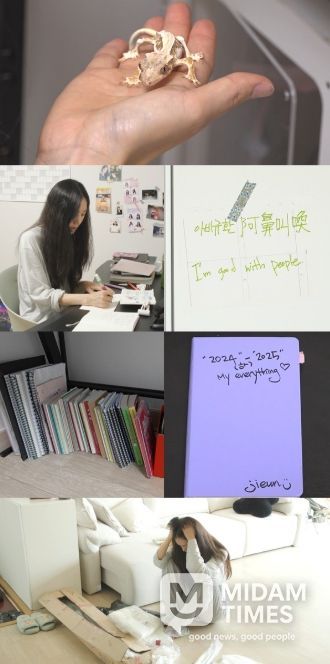 아비규환 阿鼻叫喚
I'm good with people
"2024" - "2025"
My everything♡
jieun
MIDAM
TIMES
good news, good people